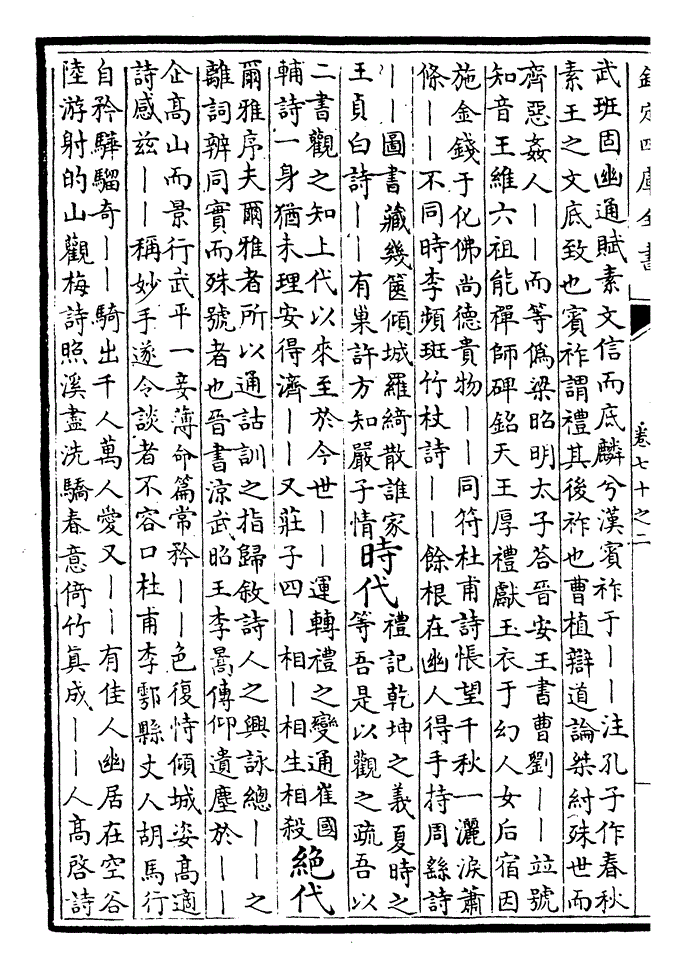 欽定四庫全書
卷七十之二
武班固幽通賦素文信而底麟兮漢賓祚于||注孔子作春秋
素王之文底致也賓祚謂禮其後祚也曹植辯道論桀紂殊世而
齊惡姦人||而等偽梁昭明太子答晉安王書曹劉||竝號
知音王維六祖能禪師碑銘天王厚禮獻玉衣于幻人女后宿因
施金錢于化佛尚德貴物||同符杜甫詩悵望千秋一灑淚蕭
條||不同時李頻斑竹杖詩||餘根在幽人得手持周繇詩
||圖書藏幾篋傾城羅綺散誰家
王貞白詩||有巢許方知嚴子情
時代
禮記乾坤之義夏時之
等吾是以觀之疏吾以
二書觀之知上代以來至於今世||運轉禮之變通崔國
輔詩一身猶未理安得濟||又莊子四|相|相生相殺
絕代
爾雅序夫爾雅者所以通詁訓之指歸敘詩人之興詠總||之
離詞辨同實而殊號者也晉書涼武昭王李暠傳仰遺塵於||
企高山而景行武平一妾薄命篇常矜||色復恃傾城姿高適
詩感兹||稱妙手遂令談者不容口杜甫李鄠縣丈人胡馬行
自矜驊騮奇||騎出千人萬人愛又||有佳人幽居在空谷
陸游射的山觀梅詩照溪盡洗驕春意倚竹真成||人高啓詩